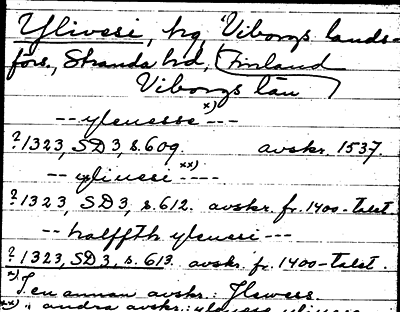 Ylivesi, hg Viborgs lands-
förs., Stranda hd, Finland
Viborgs län
-- ylenesse x) ---
?1323, SD 3, s. 609. avskr. 1537.
-- yliuesi xx) ----
?1323, SD 3, s. 612. avskr. fr. 1400-talet.
-- halffth yleuesi ---
?1323, SD 3, s. 613. avskr. fr. 1400-talet.
x) I en annan avskr.: Ilewess.
xx) " andra avskr.: